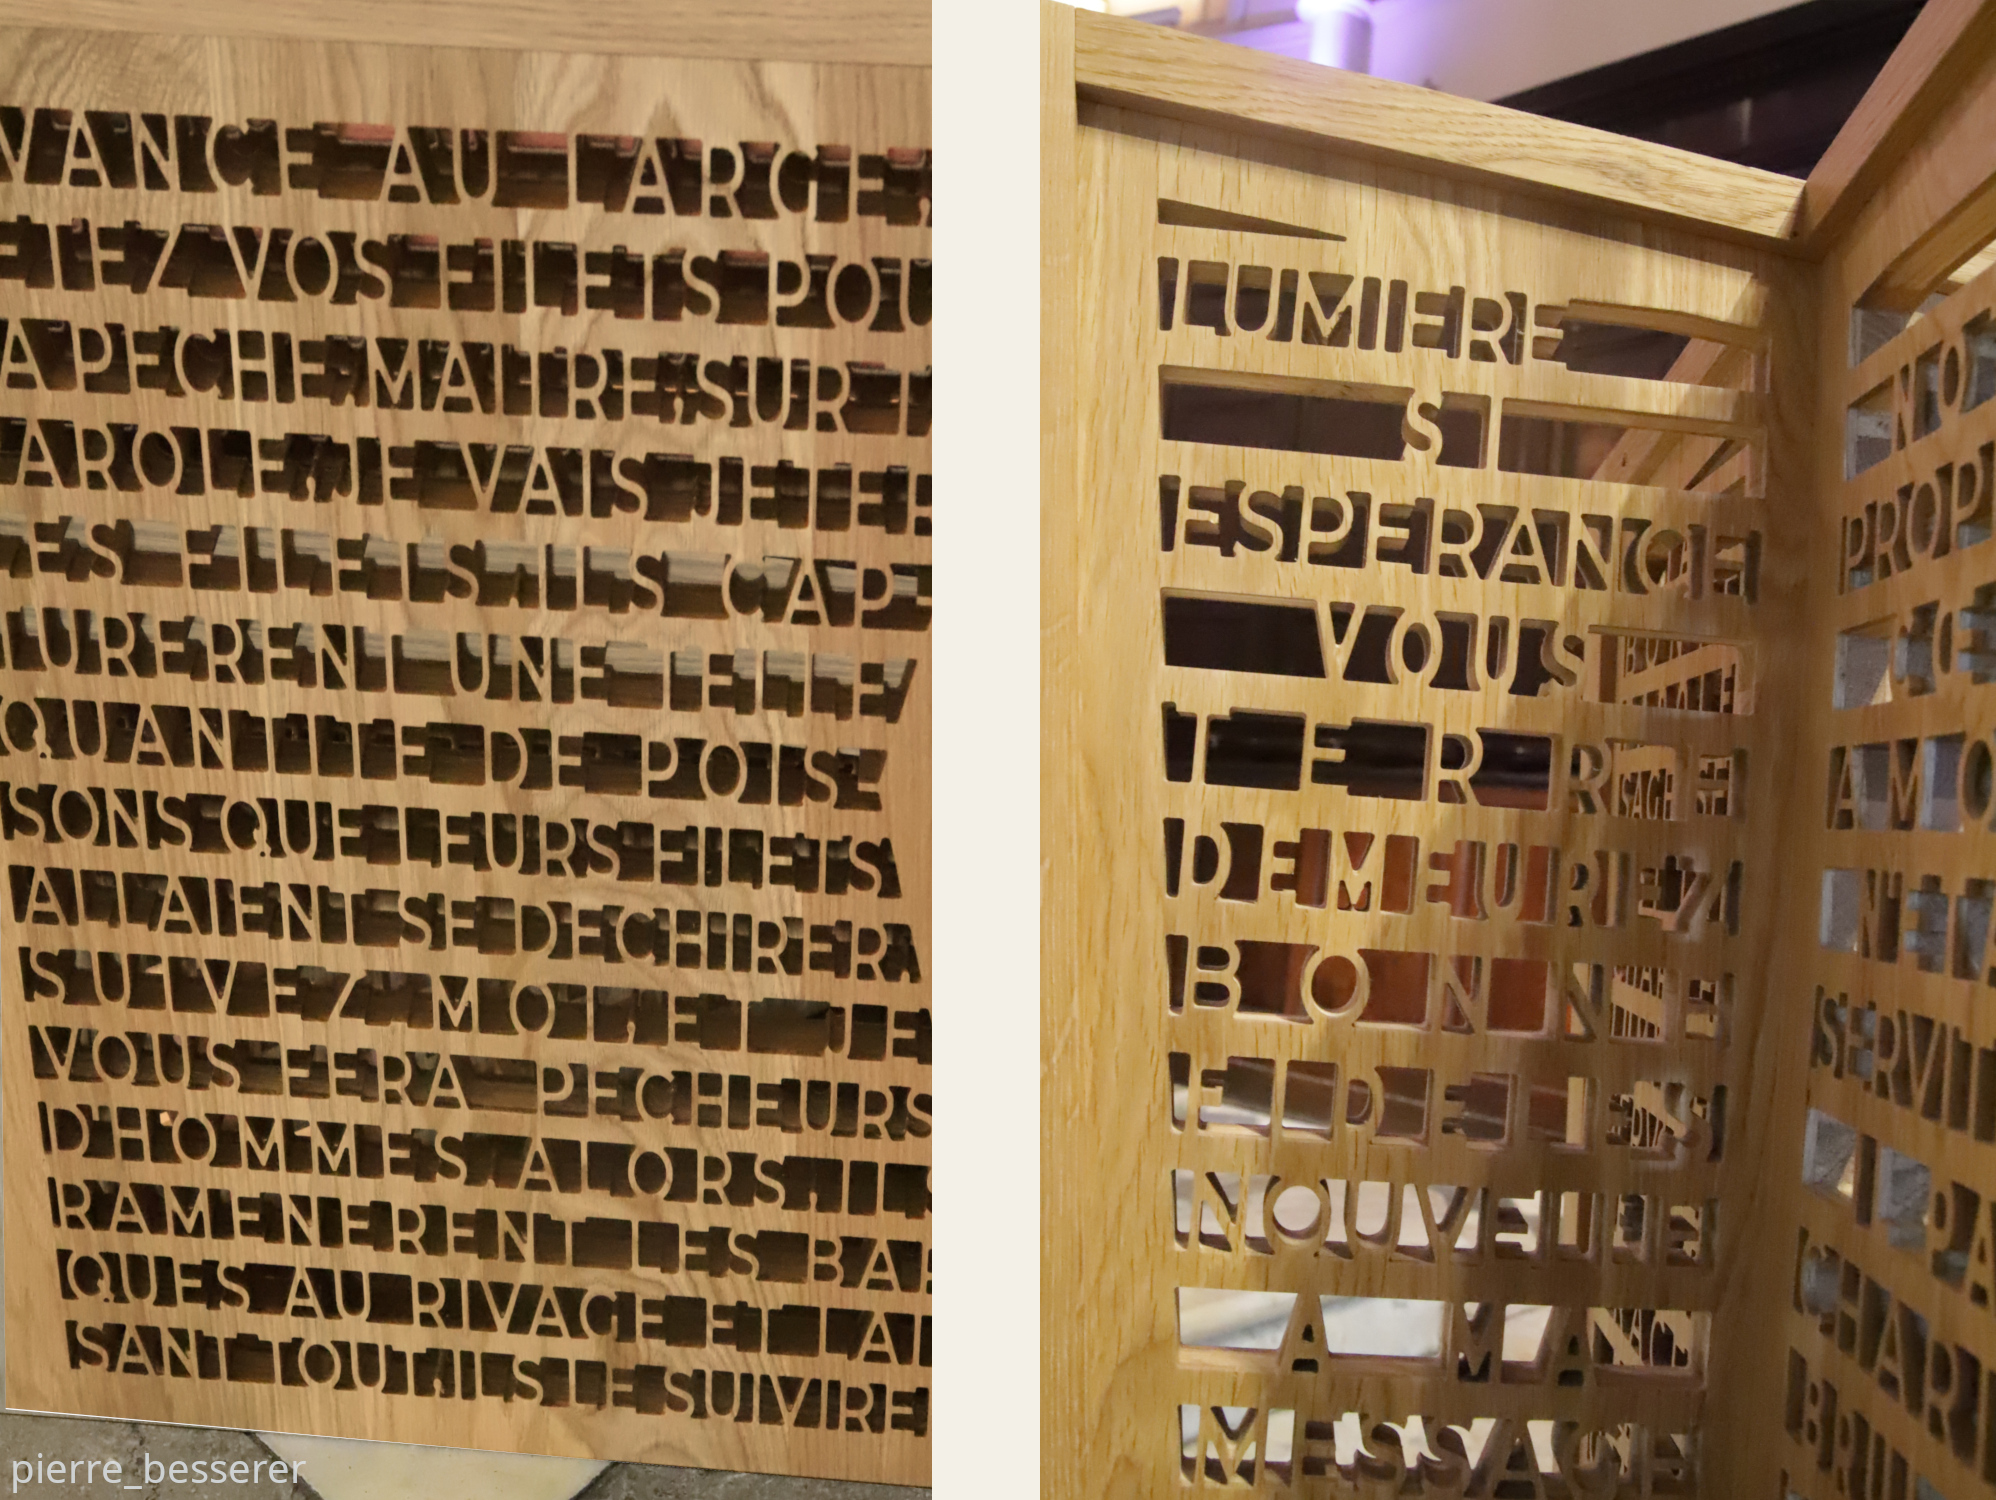 VANCE AU LARGE,
ETEZ VOS FILETS POU
A PECHE MAITRE, SUR
AROLE, JE VAIS JETER
ES FILETS, ILS CAP-
TURERENT UNE TELLE
QUANTITE DE POIS-
SONS QUE LEURS FILETS
ALLAIENT SE DECHIRER A
SUIVEZ MOI, ET JE
VOUS FERA PECHEURS
D'HOMMES ALORS, ILS
RAMENERENT LES BAR
QUES AU RIVAGE ET LAI
SANT TOUT, ILS LE SUIVIRE
pierre_besserer
LUMIERE
SI
ESPERANCE
VOUS
TERRE
DEMEUREZ
BONNE
FIDELES
NOUVELLE
A MA
MESSAGE
NO
PROP
CE
AMO
N'ETA
SERVIT
PA
CHARI
BRUI